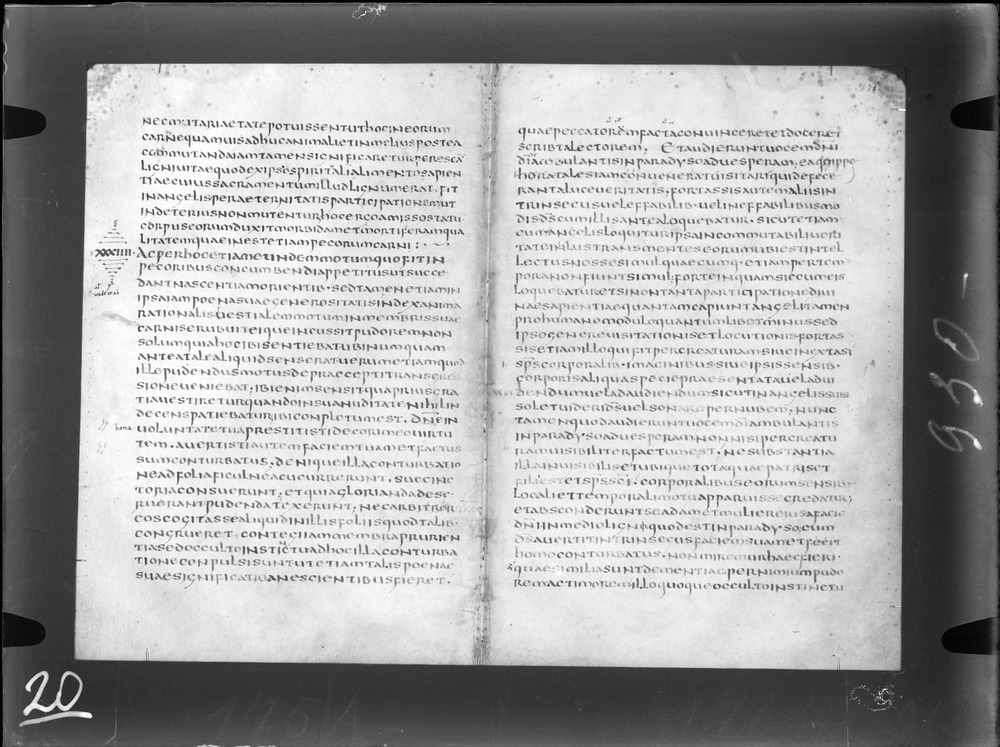 NECMUTARIAETATEPOTUISSENTUTHOCINEORUM
CARNEQUAMUISADHUCANIMALIETINMELIUSPOSTEA
COMMUTANDAIAMTAMENSIGNIFICARETURPERESCA
LIGNIUITAEQUODEXIPSOSPIRITALIALIMENTOSAPIEN
TIAECUIUSSACRAMENTUMILLUDLIGNUMERAT·FIT
INANGELISPERAETERNITATISPARTICIPATIONEMUT
INDETERIUSNONMUTENTURHOCERGOAMISSOSTATU
CORPUSEORUMDUXITMORBIDAMETMORTIFERAMQUA
LITATEMQUAEINESTETIAMPECORUMCARNI:
XXXIIII·ACPERHOCETIAMEUNDEMMOTUMQUOFITIN
PECORIBUSCONCUMBENDIAPPETITUSUTSUCCE
DANTNASCENTIAMORIENTIB·SEDTAMENETIAMIN
IPSAIAMPOENASUAEGENEROSITATISINDEXANIMA
RATIONALISBESTIALEMMOTUMINMEMBRISSUAE
CARNISERUBUITEIQUEINCUSSITPUDOREMNON
SOLUMQUIAHOCIBISENTIEBATUBINUMQUAM
ANTEATALEALIQUIDSENSERATUERUMETIAMQUOD
ILLEPUDENDUSMOTUSDEPRAECEPTITRANSGRES
SIONEUENIEBAT·IBIENIMSENSITQUAPRIUSGRA
TIAUESTIRETURQUANDOINSUANUDITATENIHILIN
DECENSPATIEBATURIBICONPLETUMEST·DNEIN
bona UOLUNTATETUAPRESTITISTIDECORIMEOUIRTU
TEM·AUERTISTIAUTEMFACIEMTUAMETFACTUS
SUMCONTURBATUS·DENIQUEILLACONTURBATIO
NEADFOLIAFICULNEACUCURRERUNT·SUCCINC
TORIACONSUERUNT·ETQUIAGLORIANDADESE
RUERANTPUDENDATEXERUNT·NECARBITROR
EOSCOGITASSEALIQUIDINILLISFOLIISQUODTALIB·
CONGRUERET·CONTEGIIAMMEMBRAPRURIEN
TIASEDOCCULTOINSTINCTUADHOCILLACONTURBA
TIONECONPULSISUNTUTETIAMTALISPOENAE
SUAESIGNIFICATIOANESCIENTIBUSFIERET·
QUAEPECCATOREMFACTACONUINCERETETDOCERET
SCRIBTALECTOREM· ETAUDIERUNTUOCEMDNI
DIAMBULANTISINPARADYSOADUESPERAM·EAQUIPPE
HORATALESIAMCONUENERATUISITARIQUIDEFECE
RANTALUCEUERITATIS·FORTASSISAUTEMALIISIN
TRINSECUSUELEFFABILIB·UELINEFFABILIBUSMO
DISDSCUMILLISANTEALOQUEBATUR·SICUTETIAM
CUMANGELISLOQUITURIPSAINCOMMUTABILIUERI
TATEINLUSTRANSMENTESEORUMUBIESTINTEL
LECTUSNOSSESIMULQUAECUMQ·ETIAMPERTEM
PORANONFIUNTSIMUL·FORTEINQUAMSICCUMEIS
LOQUEBATURETSINONTANTAPARTICIPATIONEDIUI
NAESAPIENTIAEQUANTAMCAPIUNTANGELITAMEN
PROHUMANOMODULOQUANTUMLIBETMINUSSED
IPSOGENEREUISITATIONISETLOCUTIONISFORTAS
SISETIAMILLOQUIFITPERCREATURAMSIUEINEXTASI
SPSCORPORALIB·IMAGINIBUSSIUEIPSISSENSIB·
CORPORISALIQUASPECIEPRAESENTATAUELADUI
DENDUMUELADAUDIENDUMSICUTINANGELISSUIS
SOLETUIDERIDSUELSONAREPERNUBEM·NUNC
TAMENQUODAUDIERUNTUOCEMDIAMBULANTIS
INPARADYSOADUESPERAMNONNISIPERCREATU
RAMUISIBILITERFACTUMEST·NESUBSTANTIA
ILLAINUISIBILISETUBIQUETOTAQUAEPATRISET
FILIIESTETSPSSCI·CORPORALIBUSEORUMSENSIB·
LOCALIETTEMPORALIMOTUAPPARUISSECREDATUR·
ETABSCONDERUNTSEADAMETMULIEREIUSAFACIE
DNIINMEDIOLIGNOQUODESTINPARADYSO·CUM
DSAUERTITINTRINSECUSFACIEMSUAMETFIERIT
HOMOCONTURBATUS·NONMIREMURHAECFIERI·
QUAESIMILIASUNTDEMENTIAEPERNIMIUMPUDO
REMACTIMOREMILLOQUOQUEOCCULTOINSTINCTU
930-
20